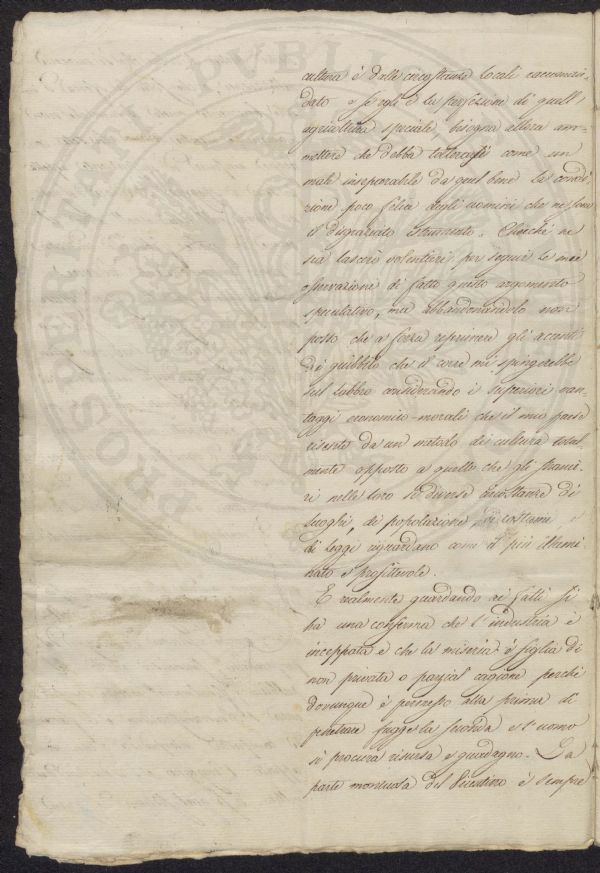 cultura è dalle circostanze locali raccoman-
dato, o se egli è la perfezione di quell'
agricoltura speciale, bisogna allora am-
mettere che debba tollerarsi come un
male inseparabile da quel bene la condi-
zione poco felice degli uomini che ne sono
il disgraziato istrumento. Checchè ne
sia lascerò volentieri per seguir le mie
osservazioni di fatto questo argomento
speculativo, ma abbandonandolo non
posso che a forza reprimere gli accenti
di giubbilo che il core mi spingerebbe
sul labbro considerando i superiori van-
taggi economico-morali che il mio paese
risente da un metodo di cultura total-
mente opposto a quello che gli stranie-
ri nelle loro sì diverse circostanze di
luoghi, di popolazione, di costumi, e
di leggi riguardano come il più illumi-
nato e profittevole.
E realmente guardando ai fatti si
ha una conferma che l'industria è
inceppata e che la miseria è figlia di
non privata o parzial cagione perchè
dovunque è permesso alla prima di
penetrare fugge la seconda e l'uomo
si procura risorsa e guadagno. La
parte montuosa del è sempre
PROSPERITATI PVBL